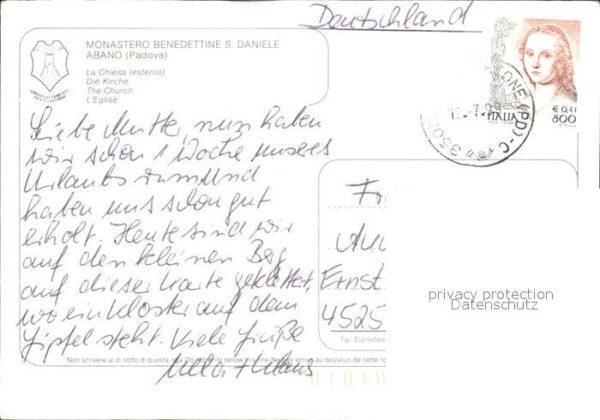 Deutschland
MONASTERO BENEDETTINE S. DANIELE
ABANO (Padova)
La Chiesa (esterno)
Die Kirche
The Church
L'Eglise
ITALIA
€ 0,41
800
Liebe Mutter, nun haben
wir schon 1 Woche unseres
Urlaubs rum und
haben uns schon gut
erholt. Heute sind wir
auf den kleinen Berg
auf dieser Karte geklettert,
wo ein Kloster auf dem
Gipfel steht. Viele Grüße
+ Klaus
Ernst
4525
privacy protection
Datenschutz
Non scrivere al di sotto di questa riga Do not